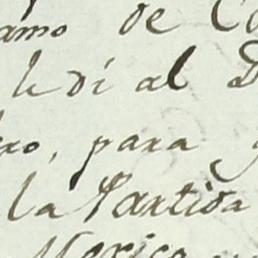 amo de Co
le di al D
ro, para
la Partida
Maria